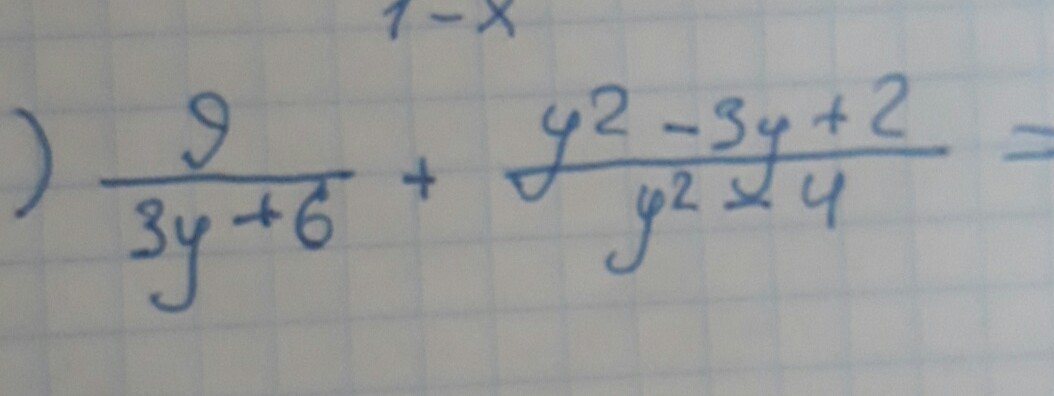 1-x
) 9/(3y+6) + (y²-3y+2)/(y²-4) =